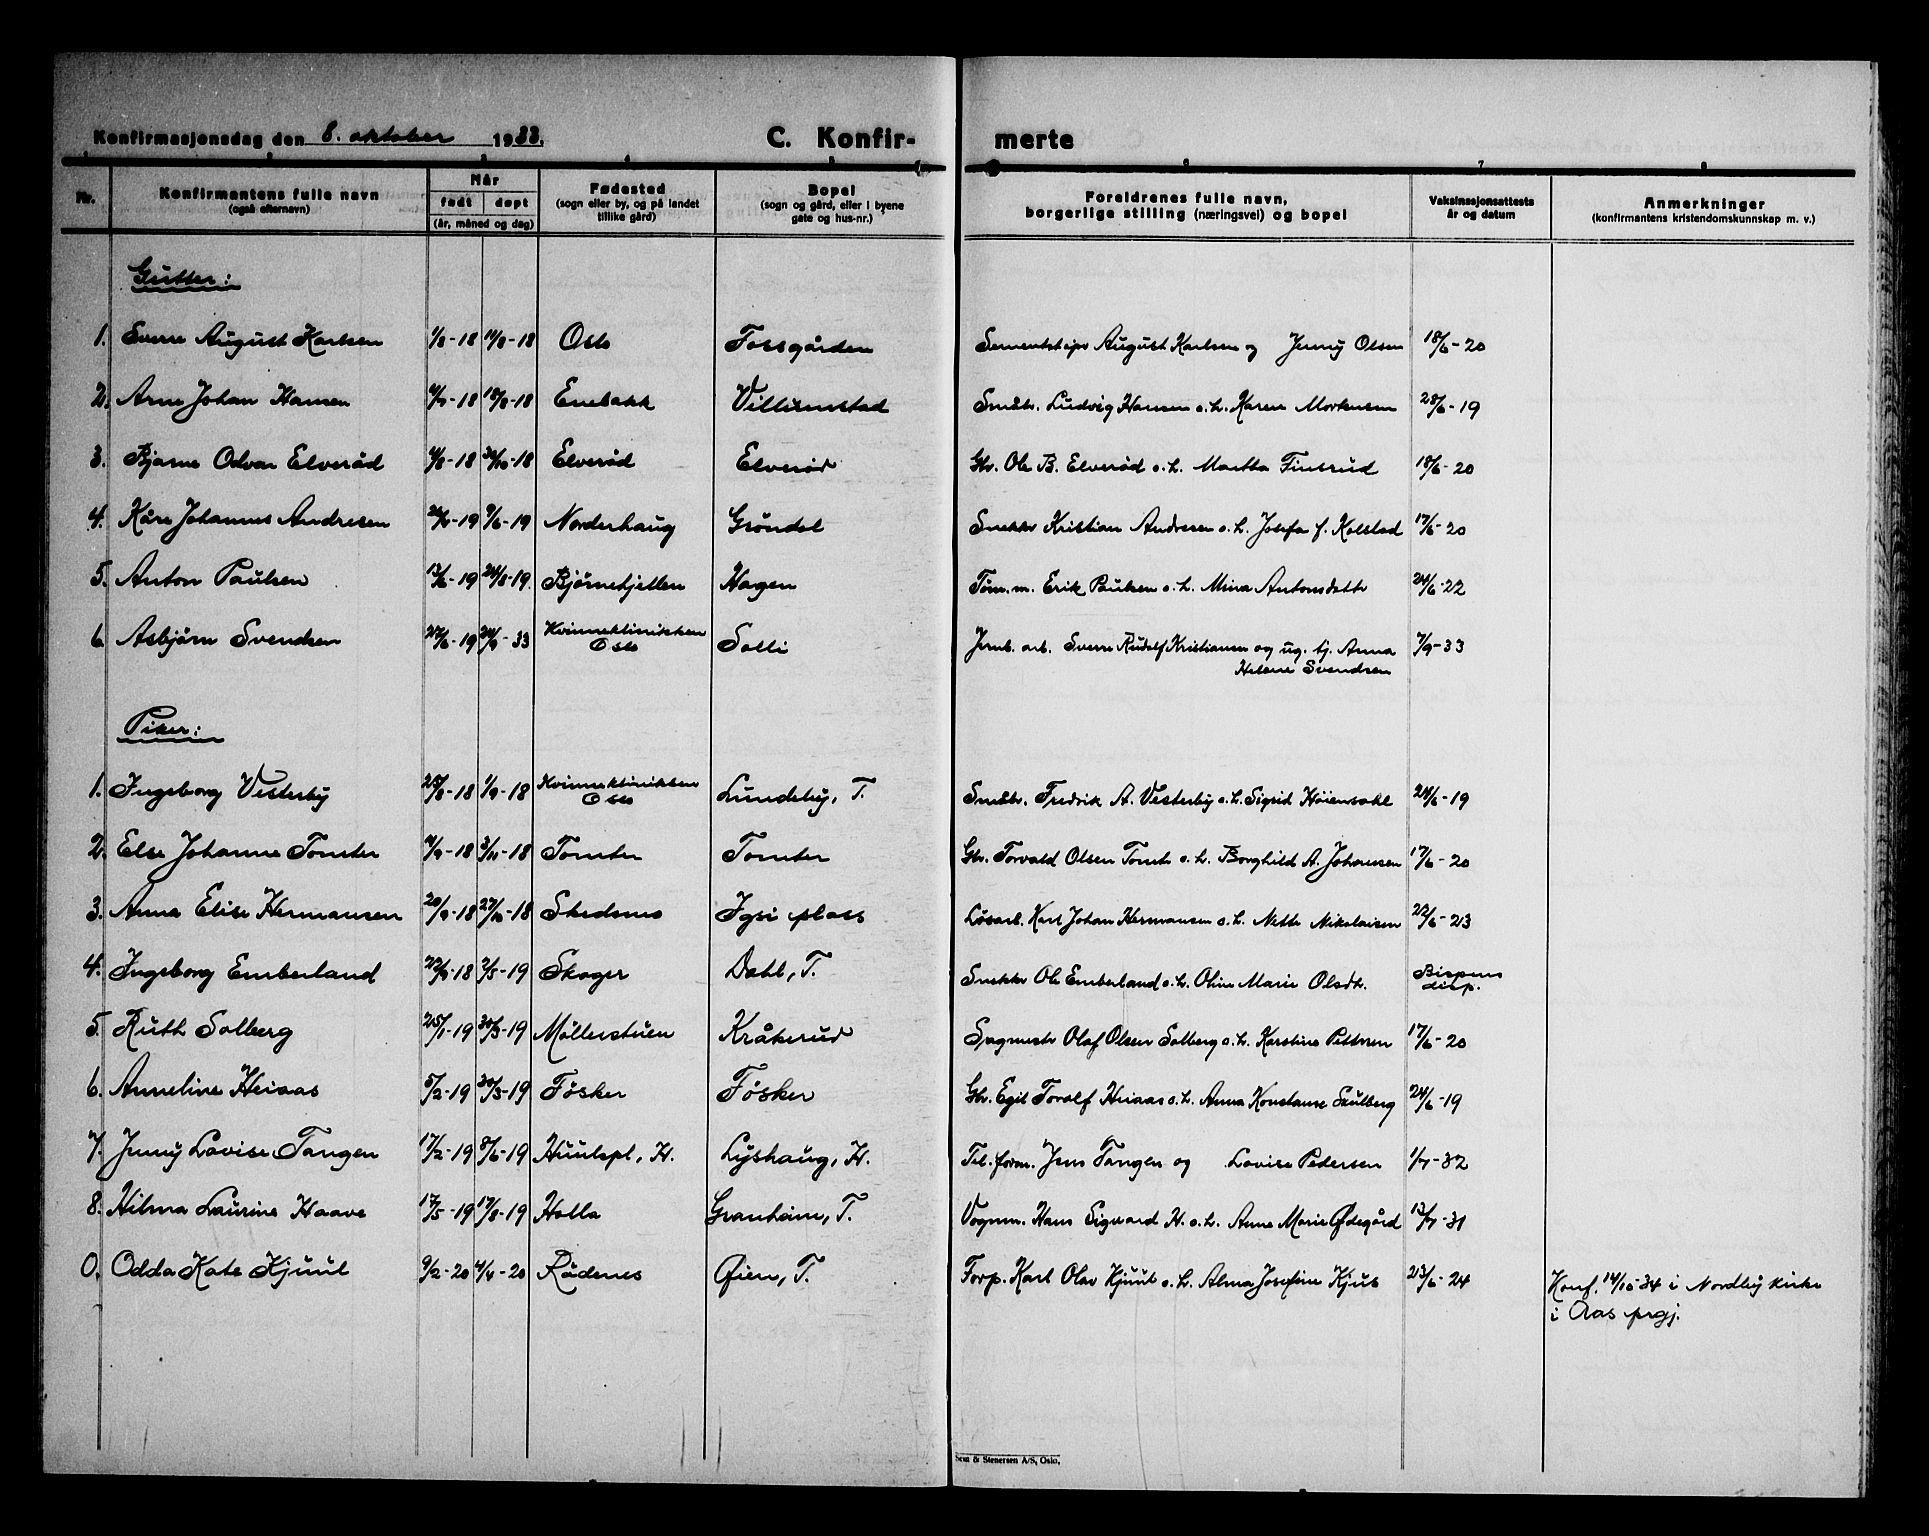 Konfirmasjonsdag den 8. oktober 1933. C. Konfir- merte
Nr. Konfirmantens fulle navn (også efternavn) Når født døpt (år, måned og dag) Fødested (sogn eller by, og på landet tillike gård) Bopel (sogn og gård, eller i byene gate og hus-nr.) 6 Foreldrenes fulle navn, borgerlige stilling (næringsvei) og bopel 7 Vaksinasjonsattests år og datum 8 Anmerkninger (konfirmantens kristendomskunnskap m. v.)
Gutter:
1. Sverre August Karlsen 1/8-18 11/8-18 Oslo Fossgården Sementstøper August Karlsen og Jenny Olsen 18/6-20
2. Arne Johan Hansen 4/7-18 18/8-18 Enebakk Villumstad Småbr. Ludvig Hansen o.h. Karen Mortensen 28/6-19
3. Bjarne Odvar Elverød 4/8-18 20/10-18 Elverød Elverød Gbr. Ole B. Elverød o.h. Martha Finsrud 18/6-20
4. Kåre Johannes Andresen -19 9/6-19 Norderhaug Grøndal Snekker Kristian Andresen o.h. Josefa f. Kolstad 17/6-20
5. Anton Paulsen 13/6-19 24/8-19 Bjørnefjellen Hagen Tøm.m. Erik Paulsen o.h. Mina Antonsdatter 24/6-22
6. Asbjørn Svendsen 27/6-19 24/9 33 Kvinneklinikken Oslo Solli Jernb. arb. Sverre Rudolf Kristiansen og ug. tj. Anna 7/9-33
Helene Svendsen
Piker:
1. Ingeborg Vesterby 25/8-18 1/9-18 Kvinneklinikken Oslo Lundeby, T. Småbr. Fredrik A. Vesterby o.h. Sigrid Høiensahl 24/6-19
2. Else Johanne Tomter 4/9-18 3/11-18 Tomter Tomter Gbr. Torvald Olsen Tomter o.h. Borghild A. Johansen 17/6-20
3. Anna Elise Hermansen 20/9-18 27/10-18 Skedsmo Igsi plass Løsarb. Karl Johan Hermansen o.h. Nette Nikolaisen 22/6-23
4. Ingeborg Emberland 22/9-18 2/3-19 Skoger Dahl, T. Snekker Ole Emberland o.h. Oline Marie Olsdtr. Bispens disp.
5. Ruth Solberg 25/1-19 30/3-19 Møllerstuen Kråkerud Sagmester Olaf Olsen Solberg o.h. Karstine Pettersen 17/6-20
6. Anneline Heiaas 5/2-19 30/3-19 Føsker Føsker Gbr. Egil Torolf Heiaas o.h. Anna Konstanse Skulberg 24/6-19
7. Jenny Lovise Tangen 17/2-19 8/6-19 Huulspl, H. Lyshaug, H. Tel. form. Jens Tangen og Lovise Pedersen 1/7-32
8. Hilma Laurine Haave 17/5-19 17/8-19 Holla Granheim, T. Vognm. Hans Sigvard H. o.h. Anne Marie Ødegård 13/7-31
0. Odda Kate Kjuul 9/2-20 4/4-20 Rødenes Øien, T. Forp. Karl Olav Kjuul o.h. Alma Josefine Kjus 23/6-24 Konf. 14/10-34 i Nordby kirke
i Aas prgj.
Sem & Stenersen A/S, Oslo.